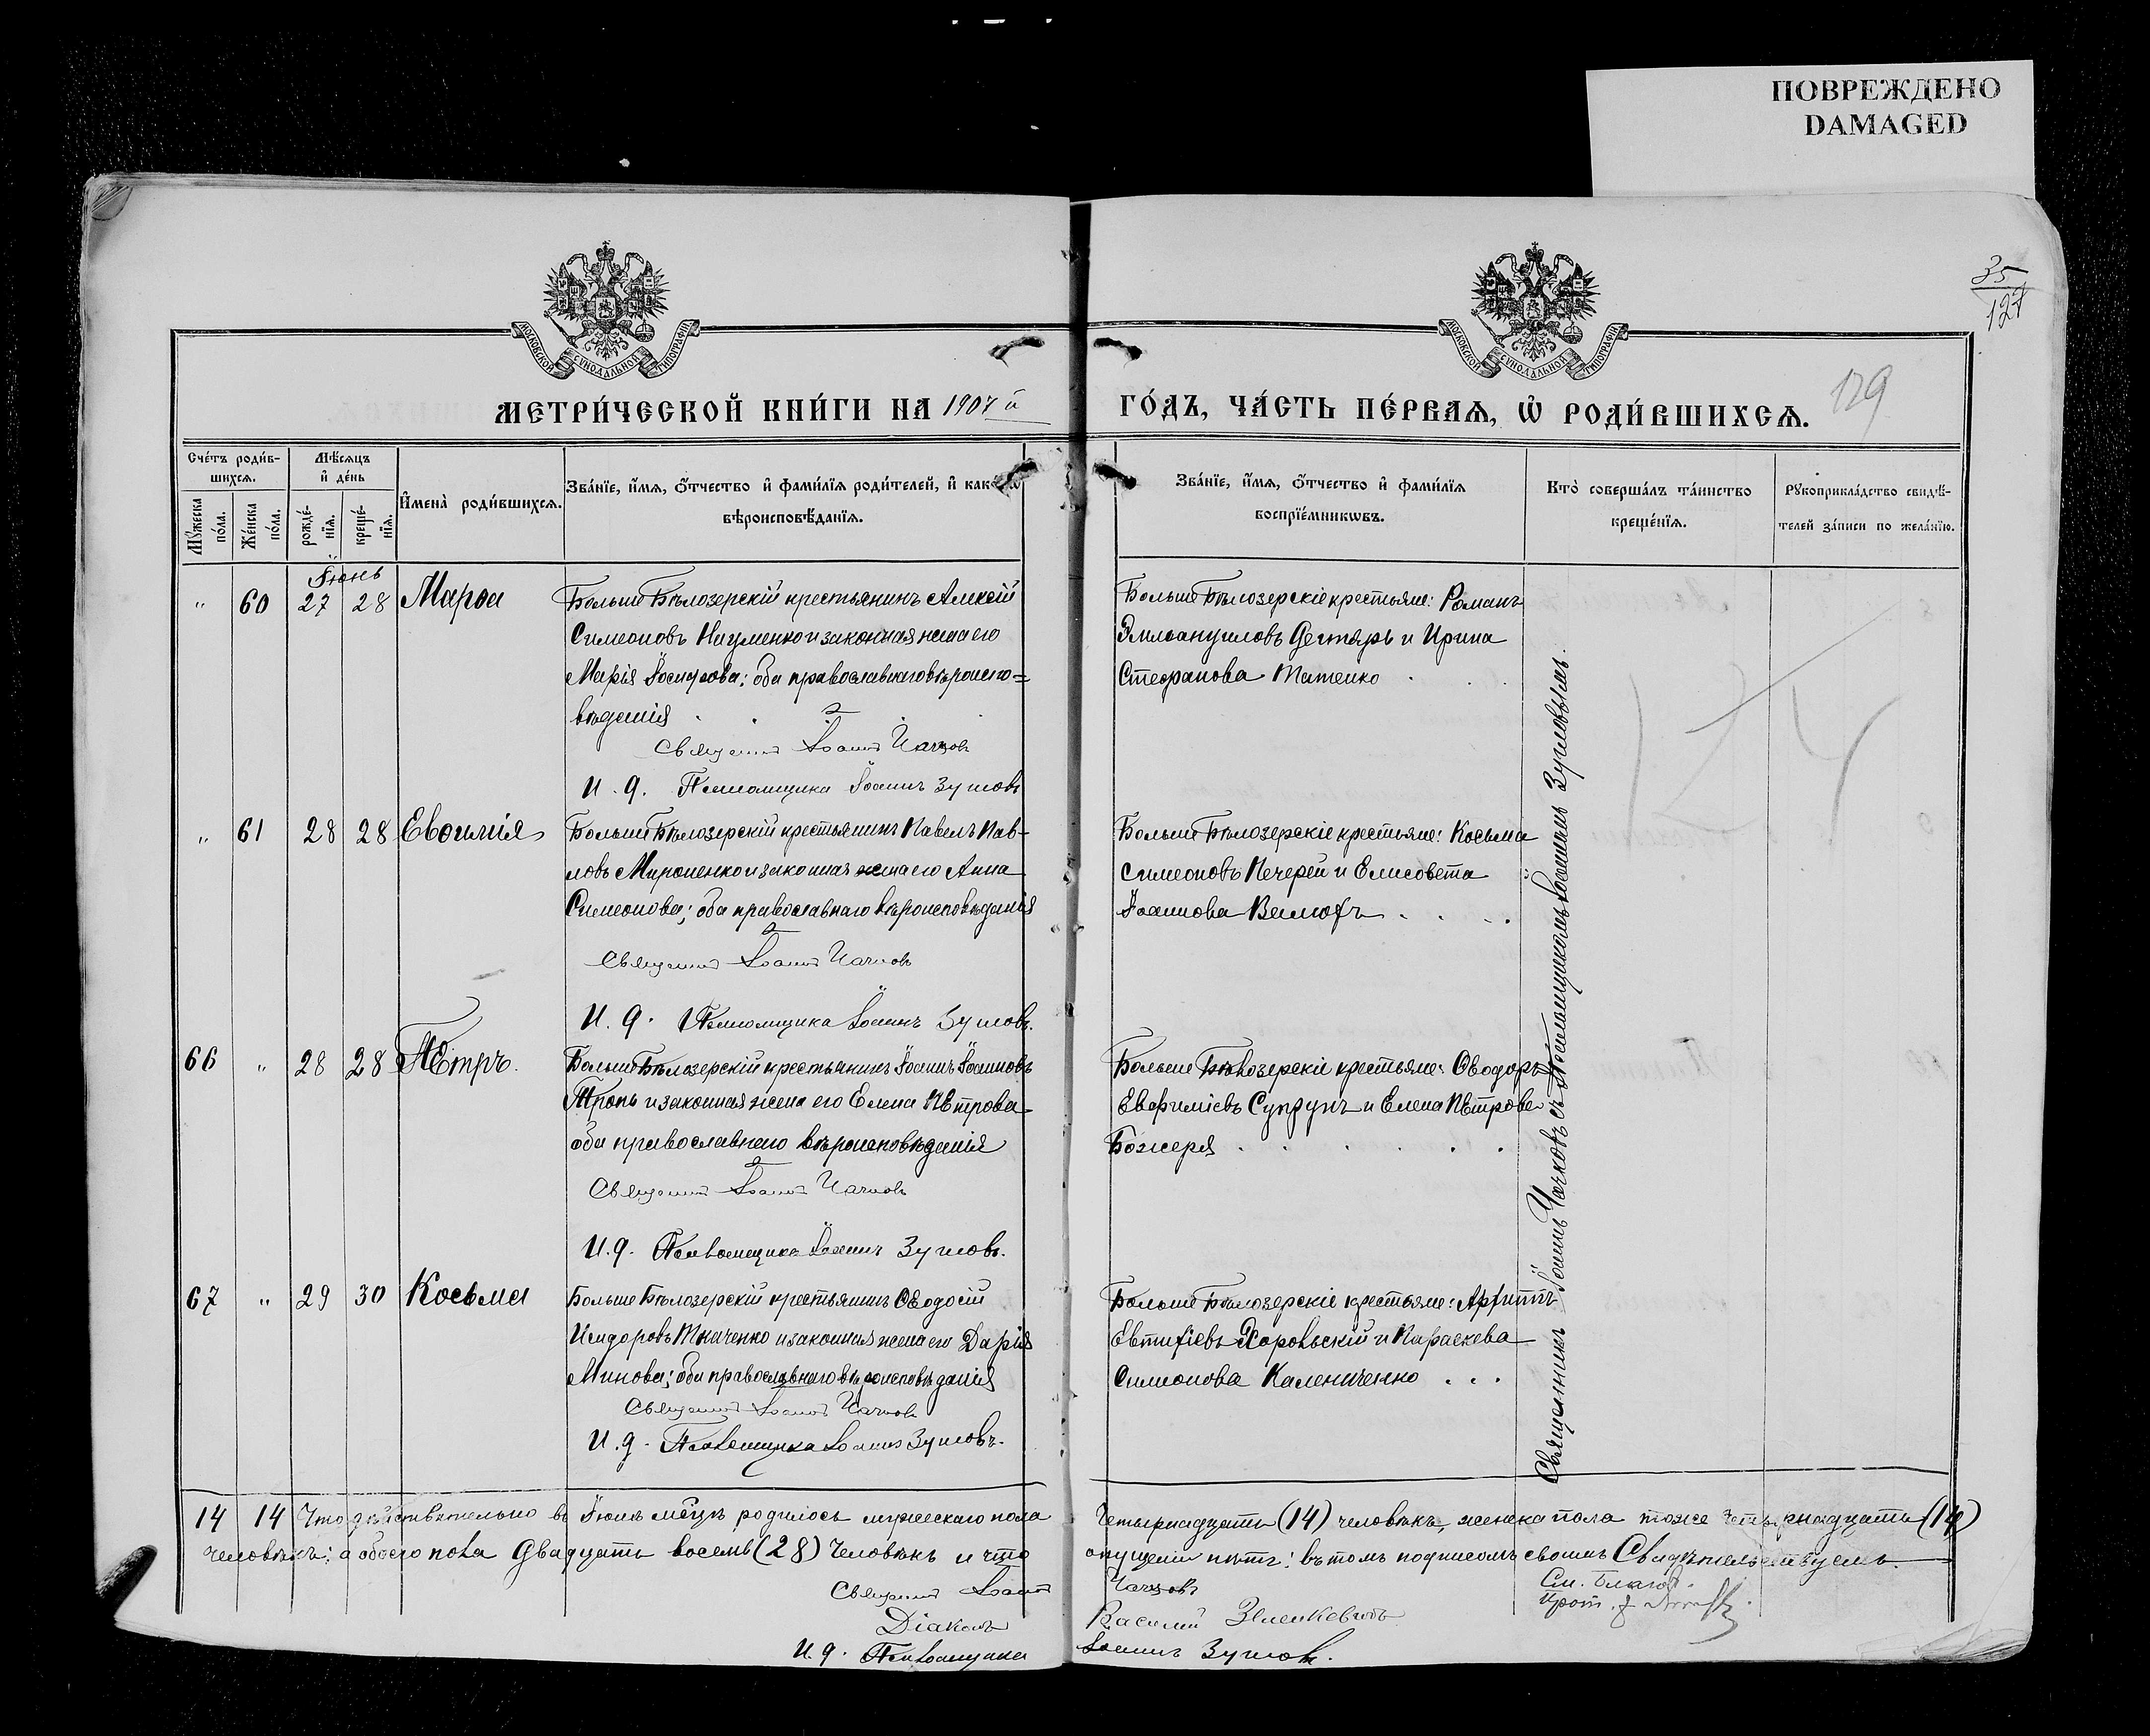 ПОВРЕЖДЕНО
DAMAGED
35
127
129
МОСКОВСКОЙ СѴНОДАЛЬНОЙ ТИПОГРАФІИ
МОСКОВСКОЙ СѴНОДАЛЬНОЙ ТИПОГРАФІИ
МЕТРИ́ЧЕСКОЙ КНИ́ГИ НА 1907 й ГО́ДЪ, ЧА́СТЬ ПЕ́РВАѦ, Ѡ҆ РОДИ́ВШИХСѦ.
Сче́тъ роди́в-
шихсѧ.
Мѣ́сѧцъ
и҆ де́нь
Мꙋ́жеска по́ла.
Же́нска по́ла.
рожде́-
нїѧ.
креще́-
нїѧ.
И҆мена̀ роди́вшихсѧ.
Зва́нїе, и҆́мѧ, ѻ҆́тчество и҆ фами́лїѧ роди́телей, и҆ како́гѡ
вѣроисповѣ́данїѧ.
Зва́нїе, и҆́мѧ, ѻ҆́тчество и҆ фами́лїѧ
воспрїе́мникѡвъ.
Кто̀ соверша́лъ та́инство
креще́нїѧ.
Рꙋкоприкла́дство свидѣ́-
телей за́писи по жела́нїю.
Іюнь
" 60 27 28 Марѳа
Больше Бѣлозерскій крестьянинъ Алексій
Симеоновъ Науменко и законная жена его
Марія Іосифова; оба православнаго вѣроиспо=
вѣданія
Священ Іоанн Чачковъ
И. д. Псаломщика Іоаннъ Зуповъ
Больше Бѣлозерскіе крестьяне: Романъ
Эммануиловъ Дегтярь и Ирина
Стефанова Татенко
" 61 28 28 Евѳимія
Больше Бѣлозерскій крестьянинъ Павелъ Пав-
ловъ Мироненко и законная жена его Анна
Симеонова; оба православнаго вѣроисповѣданія
Священ Іоанн Чачковъ
И. д. Псаломщика Іоаннъ Зуповъ.
Больше Бѣлозерскіе крестьяне: Косьма
Симеоновъ Печерей и Елисавета
Іоаннова
66 " 28 28 Петръ.
Больше Бѣлозерскій крестьянинъ Іоаннъ Іоанновъ
и законная жена его Елена Петрова
оба православнаго вѣроисповѣданія
Священ Іоанн Чачковъ
И. д. Псаломщика Іоаннъ Зуповъ.
Больше Бѣлозерскіе крестьяне: Ѳеодоръ
Евфиміевъ Супрунъ и Елена Петрова
Божеря
67 " 29 30 Косьма
Больше Бѣлозерскій крестьянинъ Ѳеодосій
Исидоровъ Ткаченко и законная жена его Дарія
Минова; оба православнаго вѣроисповѣданія
Священ Іоанн Чачковъ
И. д. Псаломщика Іоаннъ Зуповъ.
Больше Бѣлозерскіе крестьяне: Архиппъ
Евтихіевъ Хорольскій и Параскева
Симеонова Калениченко
Священникъ Іоаннъ Чачковъ съ Псаломщикомъ Іоанномъ Зуповымъ.
14 14 Что дѣйствительно въ Іюнѣ мѣцѣ родилось мужескаго пола четырнадцать (14) человѣкъ, женска пола тоже четырнадцать (14)
человѣкъ: а обоего пола двадцать восемь (28) человѣкъ и что опущеній нѣтъ: въ томъ подписомъ своимъ свидѣтельствуемъ.
Священ Іоанн Чачковъ
Діаконъ Василій
И. д. Псаломщика Іоаннъ Зуповъ.
См. Благоч.
Прот.